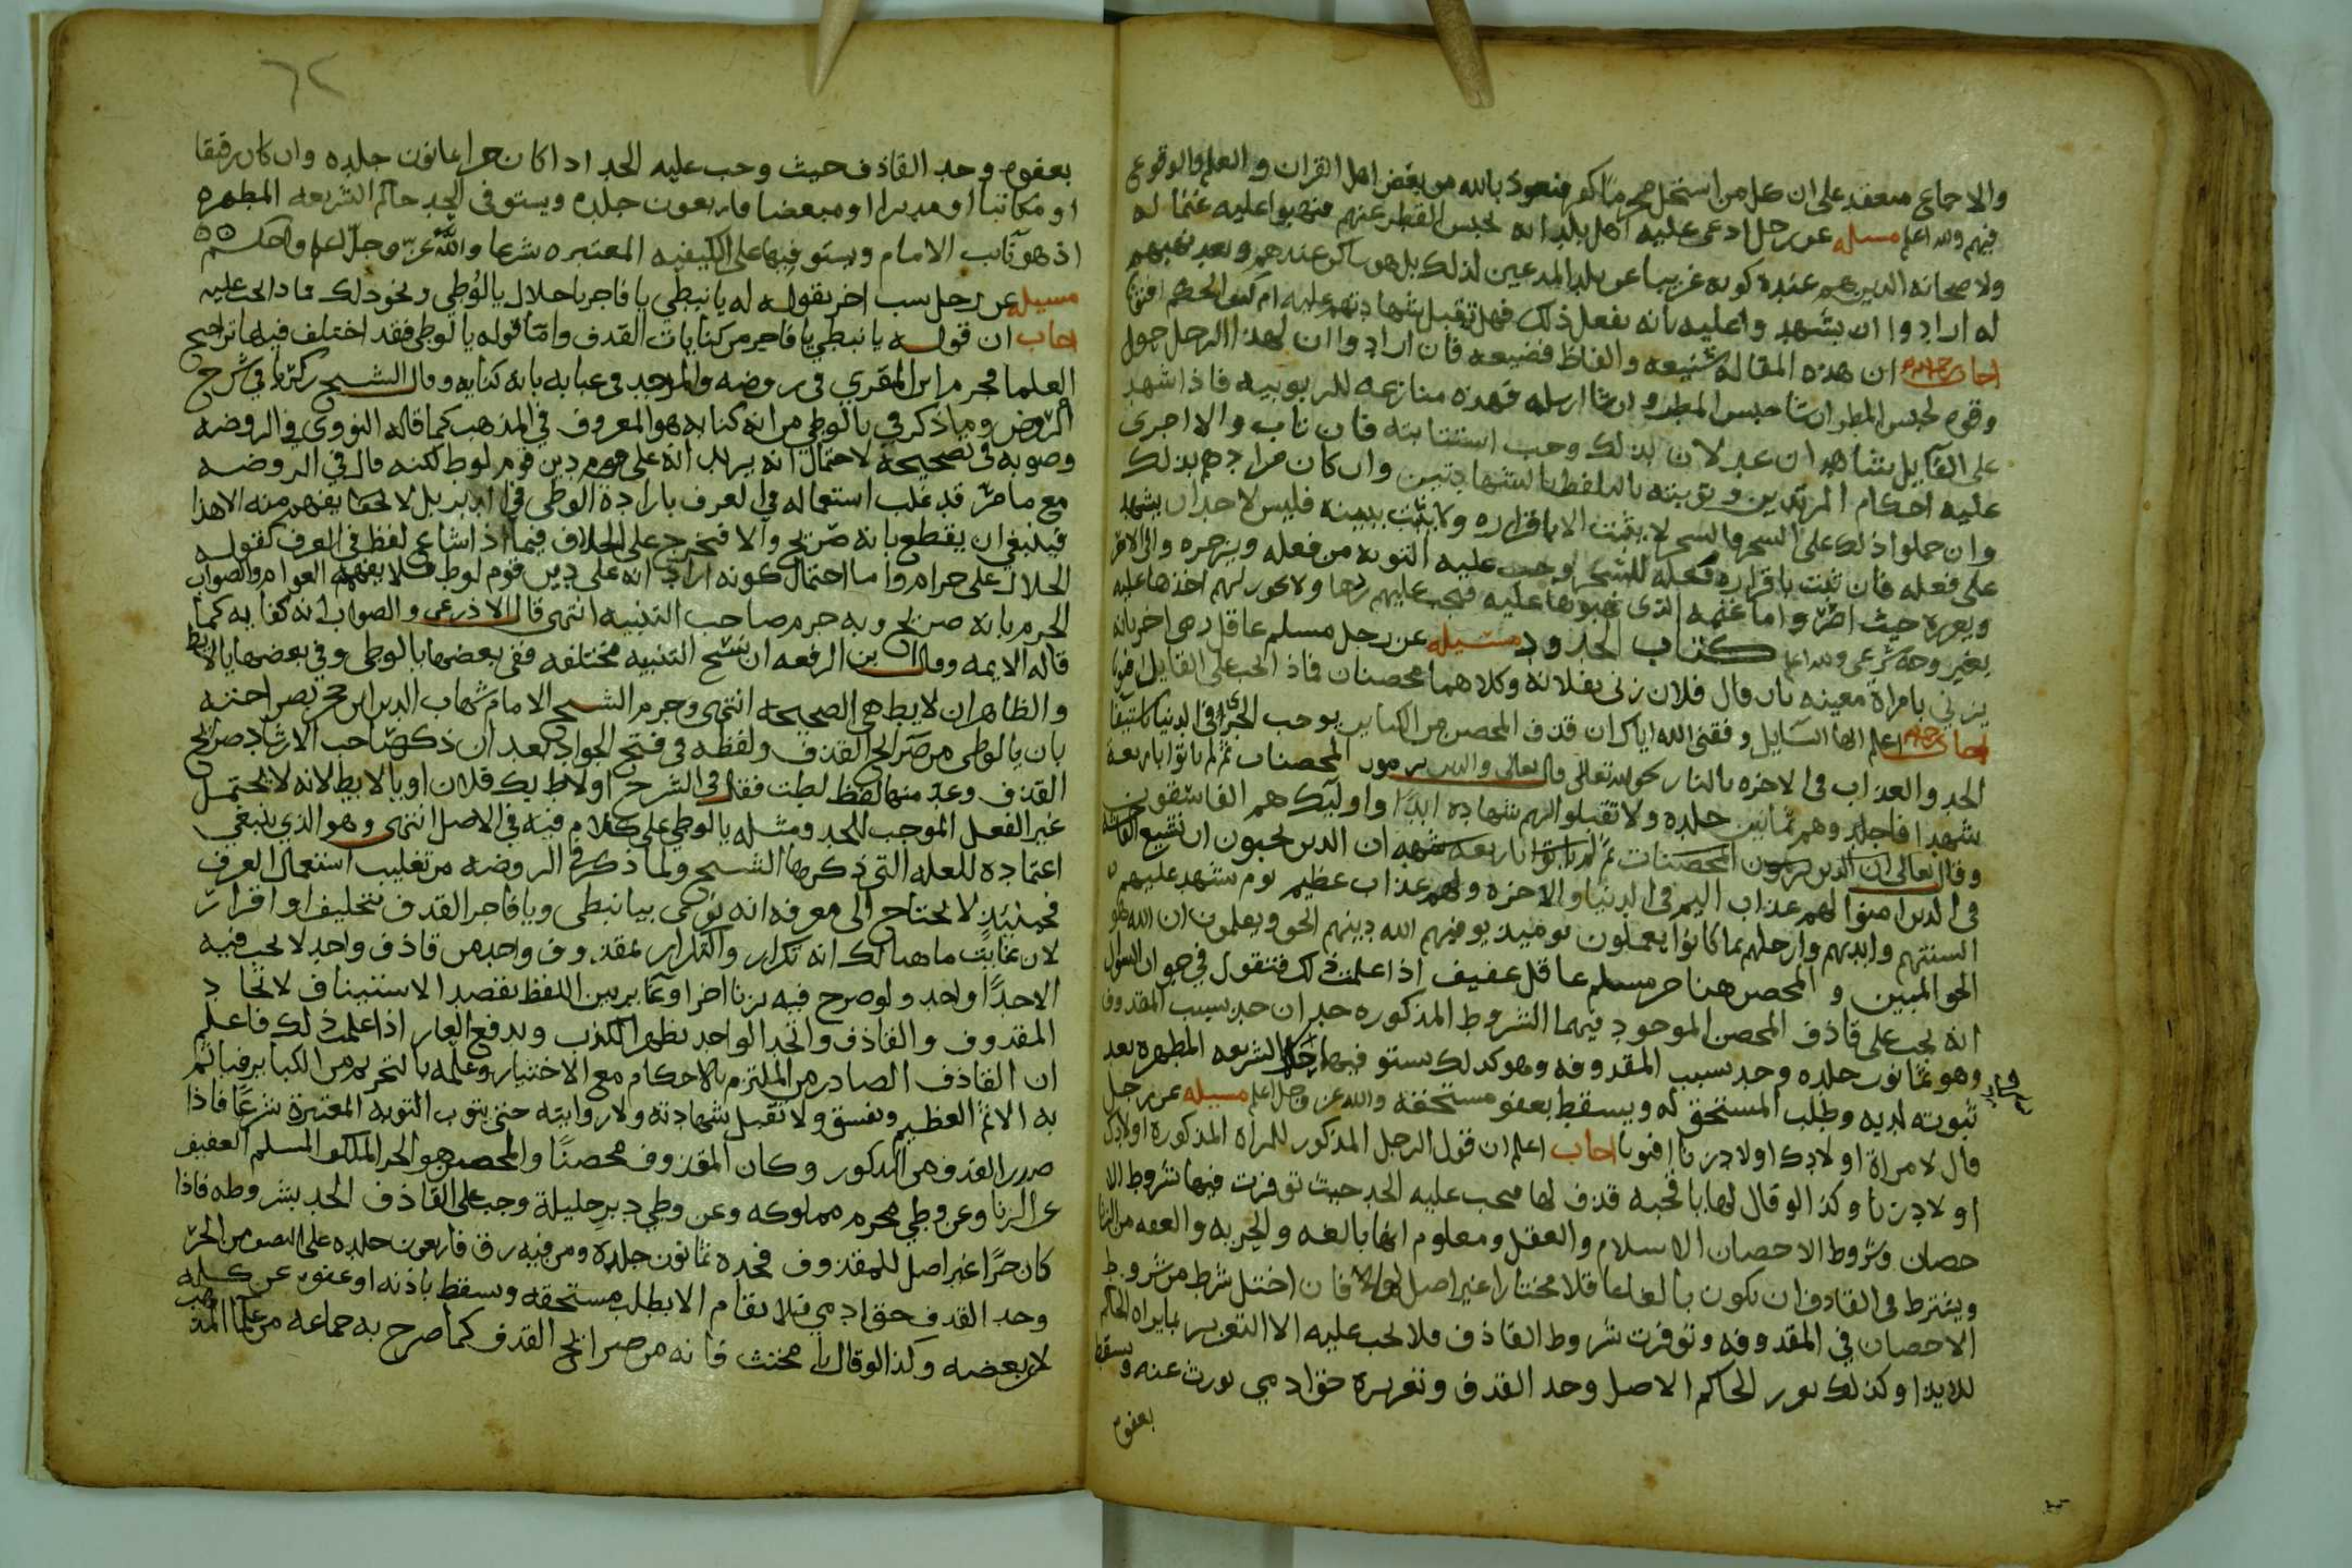 والاجماع منعقد على ان كل من استحل محرما كفر فنعوذ بالله من بعض اهل القران والعلم والوقوع
فيهم والله اعلم مسيله عن رجل ادعى عليه اهل بلد انه يحبس القطر عنهم فنهبوا عليه غنما له
ولاصحابه الذين هم عنده كونه غريبا عن بلد المدعين لذلك بل هو ساكن عندهم وبعد نهبهم
له ارادوا ان يشهدوا عليه بانه يفعل ذلك فهل تقبل شهادتهم عليه ام كيف الحكم افتونا
اجاب ان هذه المقاله شنيعه والفاظ فضيعه فان ارادوا ان لهذا الرجل حول
وقوه لحبس المطر ان شا حبس المطر وان شا ارسله فهذه منازعه للربوبيه فاذا شهد
على القايل شاهدان عدلان بذلك وجب استتابته فان تاب والا اجرى
عليه احكام المرتدين وتوبته بالتلفظ بالشهادتين وان كان مرادهم بذلك
وان حملوا ذلك على السحر فالسحر لا يثبت الا باقراره ولا يثبت ببينه فليس لاحد ان يشهد
على فعله فان ثبت باقراره فعله للسحر وجب عليه التوبه من فعله ويزجره والى الامر
ويعزره حيث اصر واما غنمه الذي نهبوها عليه فيجب عليهم ردها ولا يجوز لهم اخذها عليه
بغير وجه شرعي والله اعلم كتاب الحدود مسيله عن رجل مسلم عاقل رمى اخر بانه
يزني بامراة معينه بان قال فلان زنى بفلانة وكلاهما محصنان فاذا يجب على القايل افتونا
اجاب اعلم ايها السايل وفقني الله اياك ان قذف المحصن من الكباير يوجب الخزي في الدنيا كاستيفا
الحد والعذاب في الاخره بالنار نحو قوله تعالى قال تعالى والذين يرمون المحصنات ثم لم ياتوا باربعة
شهدا فاجلدوهم ثمانين جلده ولا تقبلوا لهم شهادة ابدا واوليك هم الفاسقون
وقال تعالى ان الذين يرمون المحصنات ثم لم ياتوا باربعه شهدا ان الذين يحبون ان تشيع الفاحشة
في الذين امنوا لهم عذاب اليم في الدنيا والاخره ولهم عذاب عظيم يوم تشهد عليهم
السنتهم وايديهم وارجلهم بما كانوا يعملون يوميذ يوفيهم الله دينهم الحق ويعلمون ان الله هو
الحق المبين والمحصن هنا حر مسلم عاقل عفيف اذا علمت ذلك فنقول في جواب السؤال
انه يجب على قاذف المحصن الموجود فيهما الشروط المذكوره حدان حد بسبب المقذوف
وهو ثمانون جلده وحد بسبب المقذوفه وهو كذلك يستوفيهما حاكم الشريعه المطهره بعد
ثبوته لديه وطلب المستحق له ويسقط بعفو مستحقه والله عز وجل اعلم مسيله عن رجل
قال لامراة اولادك اولاد زنا افتونا اجاب اعلم ان قول الرجل المذكور للمراه المذكورة اولادك
اولاد زنا وكذا لو قال لها يا قحبه قذف لها فيجب عليه الحد حيث توفرت فيها شروط الا
حصان وشروط الاحصان الاسلام والعقل ومعلوم انها بالغه والحريه والعفه من الزنا
ويشترط في القاذف ان يكون بالغا عاقلا مختارا غير اصل فان اختل شرط من شروط
الاحصان في المقذوفه وتوفرت شروط القاذف فلا يجب عليه الا التعزير بما يراه الحاكم
للايذا وكذلك يعزر الحاكم الاصل وحد القذف وتعزيره حق ادمي يورث عنه ويسقط
بعفوه
بعفوه وحد القاذف حيث وجب عليه الحد اذا كان حرا ثمانون جلده وان كان رقيقا
او مكاتبا او مدبرا او مبعضا فاربعون جلده ويستوفي الحد حاكم الشريعه المطهره
اذ هو نايب الامام ويستوفيها على الكيفيه المعتبره شرعا والله عز وجل اعلم واحكم
مسيله عن رجل سب اخر بقوله له يا نبطي يا فاجر يا حلال يا لوطي ونحو ذلك فماذا يجب عليه
اجاب ان قوله يا نبطي يا فاجر من كنايات القذف واما قوله يا لوطي فقد اختلف فيها تراجيح
العلما فجزم ابن المقري في روضه والمزجد في عبابه بانه كنايه وقال الشيخ زكريا في شرح
الروض وما ذكر في يا لوطي من انه كنايه هو المعروف في المذهب كما قاله النووي في الروضه
وصوبه في تصحيحه لاحتمال انه يريد انه على دين قوم لوط لكنه قال في الروضه
مع ما مر قد غلب استعماله في العرف بارادة الوطي في الدبر بل لا يكاد يفهم منه الا هذا
فينبغي ان يقطع بانه صريح والا فيخرج على الخلاف فيما اذا شاع لفظ في العرف كقوله
الحلال علي حرام واما احتمال كونه اراد انه على دين قوم لوط فلا يفهمه العوام والصواب
الجزم بانه صريح وبه جزم صاحب التنبيه انتهى قال الاذرعي والصواب انه كنايه كما
قاله الايمه وقال ابن الرفعه ان نسخ التنبيه مختلفه ففي بعضها يا لوطي وفي بعضها يا لايط
والظاهر ان لايط هي الصحيحه انتهى وجزم الشيخ الامام شهاب الدين ابن حجر
بان يا لوطي من صرايح القذف ولفظه في فتح الجواد بعد ان ذكر صاحب الارشاد صرايح
القذف وعد منها لفظ لطت فقال في الشرح او لاط بك فلان او يا لايط لانه لا يحتمل
غير الفعل الموجب للحد ومثله يا لوطي على كلام فيه في الاصل انتهى وهو الذي ينبغي
اعتماده للعله التي ذكرها الشيخ ولما ذكر في الروضه من تغليب استعمال العرف
فحينيذ لا يحتاج الى معرفه انه نوى بيا نبطي ويا فاجر القذف بتحليف او اقرار
لان غايت ما هنالك انه تكرار والتكرار بمقذوف واحد من قاذف واحد لا يجب فيه
الا حدا واحد ولو صرح فيه بزنا اخر او غاير بين اللفظ بقصد الاستيناف لاتحاد
المقذوف والقاذف والحد الواحد يظهر الكذب ويدفع العار اذا علمت ذلك فاعلم
ان القاذف الصادر من الملتزم بالاحكام مع الاختيار وعلمه بالتحريم من الكباير فياثم
به الاثم العظيم ويفسق ولا تقبل شهادته ولا روايته حتى يتوب التوبه المعتبرة شرعا فاذا
صدر القذف من المذكور وكان المقذوف محصنا والمحصن هو الحر المكلف المسلم العفيف
عن الزنا وعن وطي محرم مملوكه وعن وطي دبر حليلة وجب على القاذف الحد بشروطه فاذا
كان حرا غير اصل للمقذوف فحده ثمانون جلدة ومن فيه رق فاربعون جلده على النصف من الحر
وحد القذف حق ادمي فلا يقام الا بطلب مستحقه ويسقط باذنه او عفوه عن كله
لا بعضه وكذا لو قال يا مخنث فانه من صرايح القذف كما صرح به جماعه من علما المذهب